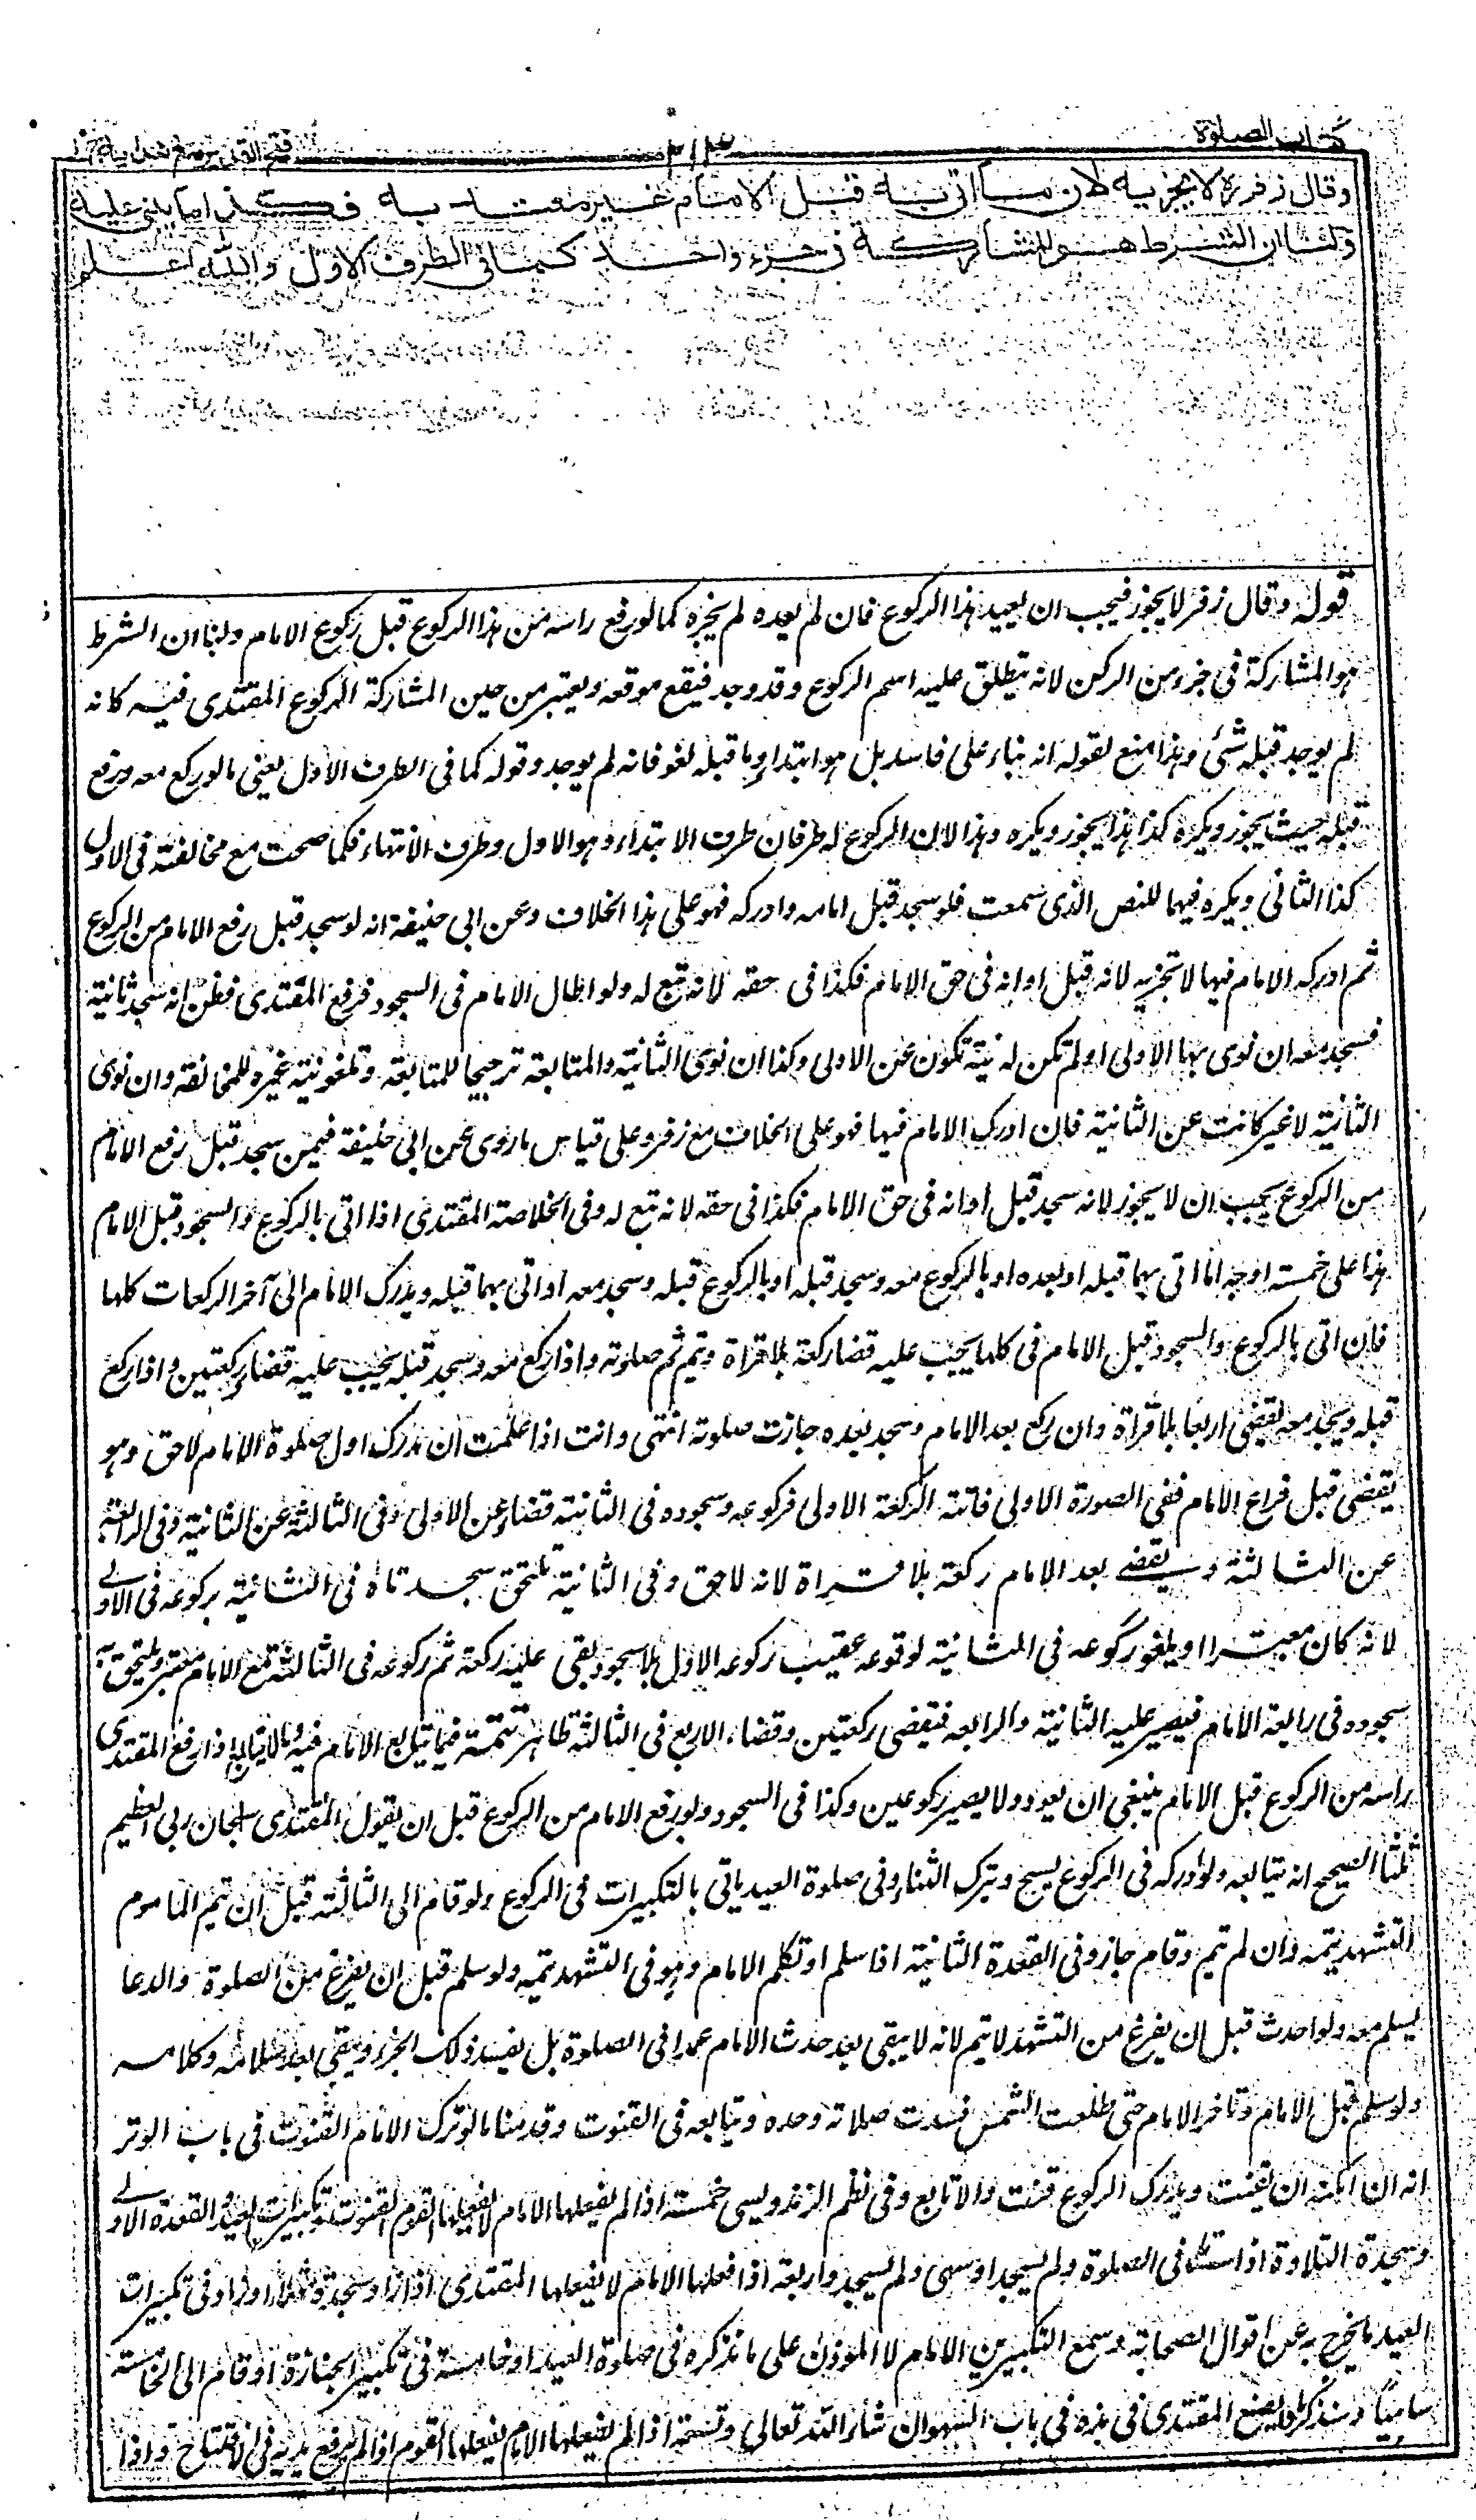 كتاب الصلوة
٢١٣
فتح القدير مع هدايه ج ١
وقال زفر رہ لا يجزيه لان ما اتى به قبل الامام غير معتد به فكذا ما يبنى عليه
ولنا ان الشرط هو المشاركة فى جزء واحد كما فى الطرف الاول والله اعلم
قوله وقال زفر لا يجوز فيجب ان يعيد هذا الركوع فان لم يعده لم يجزه كما لو رفع راسه من هذا الركوع قبل ركوع الامام ولنا ان الشرط
هو المشاركة فى جزء من الركن لانه ينطلق عليه اسم الركوع وقد وجد فيقع موقعه ويعتبر من حين المشاركة الركوع المقتدى فيه كانه
لم يوجد قبله شئ وهذا منع لقوله انه بناء على فاسد بل هو ابتداء وما قبله لغو فانه لم يوجد وقوله كما فى الطرف الاول يعنى ما لو ركع معه ورفع
قبله حيث يجوز ويكره كذا هذا يجوز ويكره وهذا لان الركوع له طرفان طرف الابتداء وهو الاول وطرف الانتهاء فكما صحت مع مخالفته فى الاول
كذا الثانى ويكره فيهما للنص الذى سمعت فلو سجد قبل امامه وادركه فهو على هذا الخلاف وعن ابى حنيفة انه لو سجد قبل رفع الامام من الركوع
ثم ادركه الامام فيها لا تجزيه لانه قبل اوانه فى حق الامام فكذا فى حقه لانه تبع له ولو اطال الامام فى السجود فرفع المقتدى فظن انه سجد ثانية
فسجد معه ان نوى بها الاولى او لم تكن له نية تكون عن الاولى وكذا ان نوى الثانية والمتابعة ترجيحا للمتابعة وتلغو نية غيره للمخالفة وان نوى
الثانية لا غير كانت عن الثانية فان ادرك الامام فيها فهو على الخلاف مع زفر وعلى قياس ما روى عن ابى حنيفة فيمن سجد قبل رفع الامام
من الركوع يجب ان لا يجوز لانه سجد قبل اوانه فى حق الامام فكذا فى حقه لانه تبع له وفى الخلاصة المقتدى اذا اتى بالركوع والسجود قبل الامام
هذا على خمسة اوجه اما اتى بهما قبله او بعده او بالركوع معه وسجد قبله او بالركوع قبله وسجد معه او اتى بهما قبله ويدرك الامام الى آخر الركعات كلها
فان اتى بالركوع والسجود قبل الامام فى كلها يجب عليه قضاء ركعة بلا قراة وتم ثم صلوته واذا ركع معه وسجد قبله يجب عليه قضاء ركعتين واذا ركع
قبله وسجد معه يقضى اربعا بلا قراة وان ركع بعد الامام وسجد بعده جازت صلوته انتهى وانت اذا علمت ان مدرك اول صلوة الامام لاحق وهو
يقضى قبل فراغ الامام ففى الصورة الاولى فاتته الركعة الاولى فركوعه وسجوده فى الثانية قضاء عن الاولى وفى الثالثة عن الثانية وفى الرابعة
عن الثالثة ويقضى بعد الامام ركعة بلا قراة لانه لاحق وفى الثانية تلتحق سجدتاه فى الثانية بركوعه فى الاولى
لانه كان معتبرا ويلغو ركوعه فى الثانية لوقوعه عقيب ركوعه الاول بلا سجود بقى عليه ركعة ثم ركوعه فى الثالثة مع الامام معتبر ويلتحق به
سجوده فى رابعة الامام فيصير عليه الثانية والرابعه فيقضى ركعتين وقضاء الاربع فى الثالثة ظاهر تتمة فيما يتابع الامام فيه وما لا يتابعه اذا رفع المقتدى
راسه من الركوع قبل الامام ينبغى ان يعود ولا يصير ركوعين وكذا فى السجود ولو رفع الامام من الركوع قبل ان يقول المقتدى سبحان ربى العظيم
ثلثا الصحيح انه يتابعه ولو ادركه فى الركوع يسبح ويترك الثناء وفى صلوة العيد ياتى بالتكبيرات فى الركوع ولو قام الى الثالثة قبل ان يتم الماموم
التشهد يتمه وان لم يتم وقام جاز وفى القعدة الثانية اذا سلم او تكلم الامام وهو فى التشهد يتمه ولو سلم قبل ان يفرغ من الصلوة والدعا
يسلم معه ولو احدث قبل ان يفرغ من التشهد لا يتم لانه لا يبقى بعد حدث الامام عمدا فى الصلوة بل يفسد ذلك الجزء ويبقى بعد سلامه وكلامه
ولو سلم قبل الامام وتاخر الامام حتى طلعت الشمس فسدت صلاته وحده ويتابعه فى القنوت وقدمنا ما لو ترك الامام القنوت فى باب الوتر
انه ان امكنه ان يقنت ويدرك الركوع قنت والا تابع وفى نظم الزندويسى خمسة اذا لم يفعلها الامام لا يفعلها القوم القنوت وتكبيرات العيد والقعدة الاولى
وسجدة التلاوة اذا تلا فى الصلوة ولم يسجد او سهى ولم يسجد واربعة اذا فعلها الامام لا يفعلها المقتدى اذا زاد سجدة مثلا او زاد فى تكبيرات
العيد ما يخرج به عن اقوال الصحابة وسمع التكبير من الامام لا الموذن على ما نذكره فى صلوة العيد او خامسة فى تكبير الجنازة او قام الى الخامسة
ساهيا وسنذكر ما يصنع المقتدى فى هذه فى باب السهو ان شاء الله تعالى وتسعة اذا لم يفعلها الامام يفعلها القوم اذا لم يرفع يديه فى الافتتاح واذا